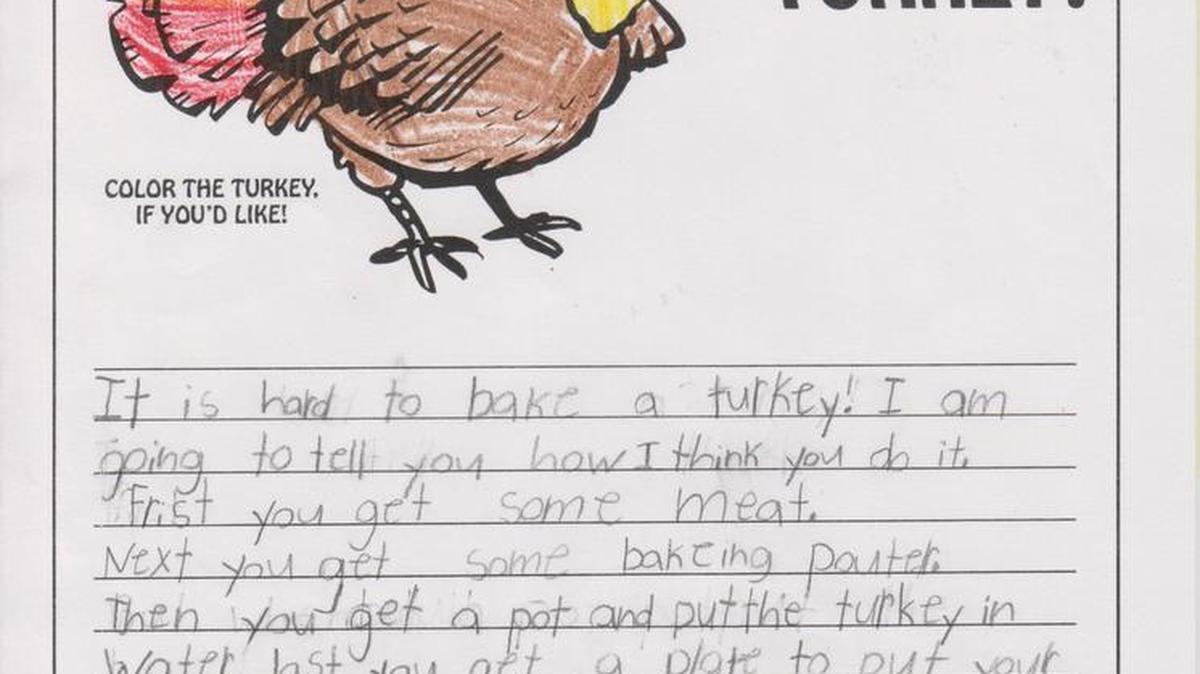 TURKEY!
COLOR THE TURKEY,
IF YOU'D LIKE!
It is hard to bake a turkey! I am
going to tell you how I think you do it.
Frist you get some meat.
Next you get some bakeing pauter.
Then you get a pot and put the turkey in
Water last you get a plate to put your